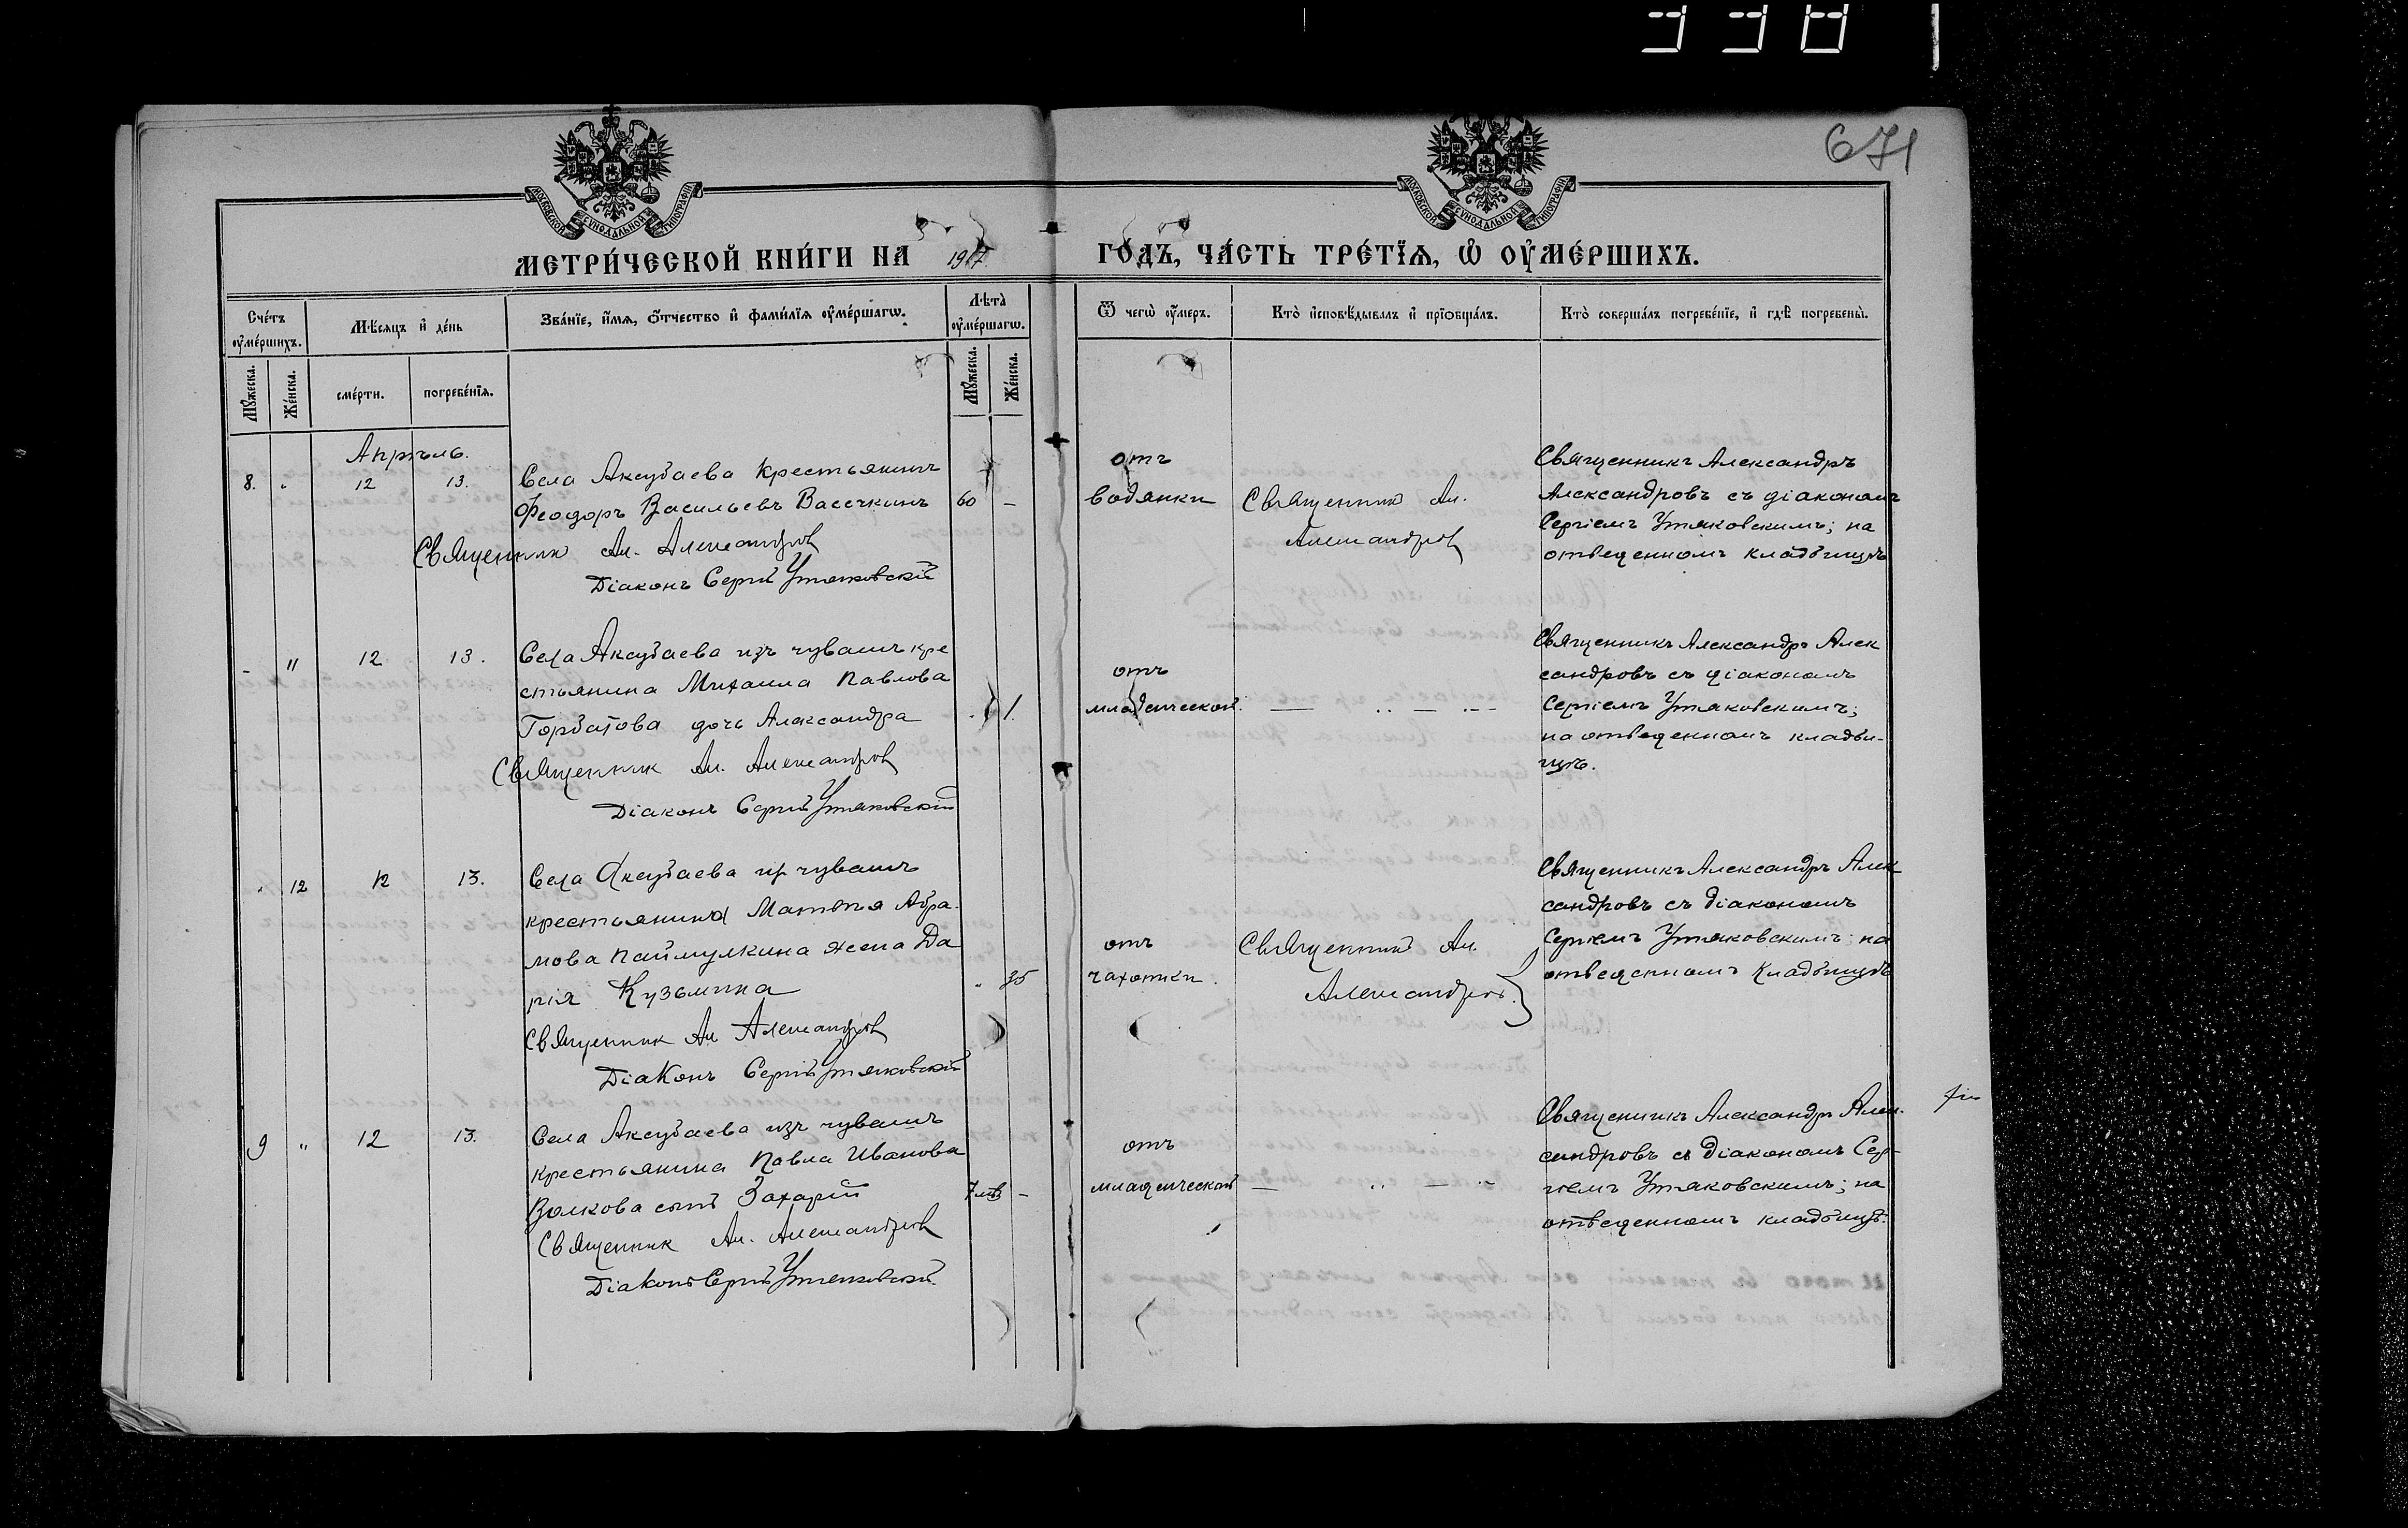 338
671
МОСКОВСКОЙ СУНОДАЛЬНОЙ ТИПОГРАФІИ
МОСКОВСКОЙ СУНОДАЛЬНОЙ ТИПОГРАФІИ
МЕТРИ́ЧЕСКОЙ КНИ́ГИ НА 1917 ГО́ДЪ, ЧА́СТЬ ТРЕ́ТЇѦ, Ѡ҆ ОУ҆МЕ́РШИХЪ.
Сче́тъ оу҆ме́ршихъ.
Мѣ́сѧцъ и҆ де́нь
Зва́нїе, и҆́мѧ, ѻ҆́тчество и҆ фами́лїѧ оу҆ме́ршагѡ.
Лѣта̀ оу҆ме́ршагѡ.
Ѿ чегѡ̀ оу҆́меръ.
Кто̀ и҆сповѣ́дывалъ и҆ прїѻбща́лъ.
Кто̀ соверша́лъ погребе́нїе, и҆ гдѣ̀ погребены̀.
Мꙋ́жеска.
Же́нска.
сме́рти.
погребе́нїѧ.
Мꙋ́жеска.
Же́нска.
Апрѣль.
8. " 12 13. Села Аксубаева крестьянинъ
Феодоръ Васильевъ Васечкинъ 60 —
Священник Ал. Александров
Діаконъ Сергій Утяковскій
отъ
водянки
Священник Ал.
Александров
Священникъ Александръ
Александровъ съ діакономъ
Сергіемъ Утяковскимъ; на
отведенномъ кладбищѣ
- 11 12 13. Села Аксубаева изъ чувашъ кре
стьянина Михаила Павлова
Горбатова дочь Александра 1.
Священник Ал. Александров
Діаконъ Сергій Утяковскій
отъ
младенческой. — .. — .. -
Священникъ Александръ Алек
сандровъ съ діакономъ
Сергіемъ Утяковскимъ;
на отведенномъ кладби-
щѣ.
" 12 12 13. Села Аксубаева из чувашъ
крестьянина Матвѣя Абра-
мова Паймулкина жена Да
рія Кузьмина " 35
Священник Ал Александров
Діаконъ Сергій Утяковскій
отъ
чахотки.
Священник Ал.
Александров.
Священникъ Александръ Алек
сандровъ съ діакономъ
Сергіемъ Утяковскимъ; на
отведенномъ кладбищѣ
9 " 12 13. Села Аксубаева изъ чувашъ
крестьянина Павла Иванова
Волкова сынъ Захарій 7 мѣс —
Священник Ал. Александров
Діаконъ Сергій Утяковский
отъ
младенческой — .. — ..
Священникъ Александръ Алек-
сандровъ съ діакономъ Сер-
гіемъ Утяковскимъ; на
отведенномъ кладбищѣ.